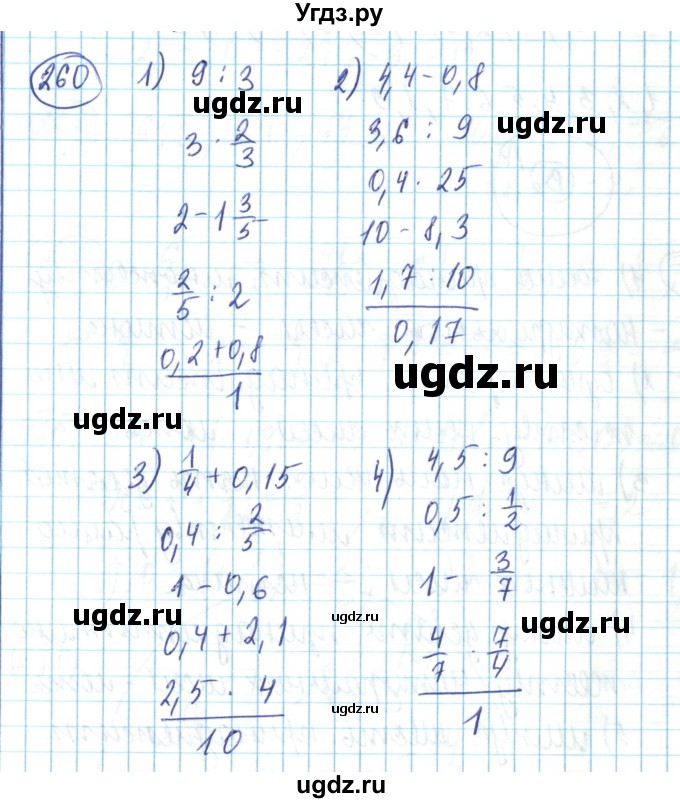 Угдз.ру
260
1) 9 : 3
3 · 2/3
2 - 1 3/5
2/5 : 2
0,2 + 0,8
1
2) 4,4 - 0,8
3,6 : 9
0,4 · 25
10 - 8,3
1,7 : 10
0,17
3) 1/4 + 0,15
0,4 : 2/5
1 - 0,6
0,4 + 2,1
2,5 · 4
10
4) 4,5 : 9
0,5 : 1/2
1 - 3/7
4/7 · 7/4
1
ugdz.ru
ugdz.ru
ugdz.ru
ugdz.ru
ugdz.ru
ugdz.ru
ugdz.ru
ugdz.ru
ugdz.ru
ugdz.ru
ugdz.ru